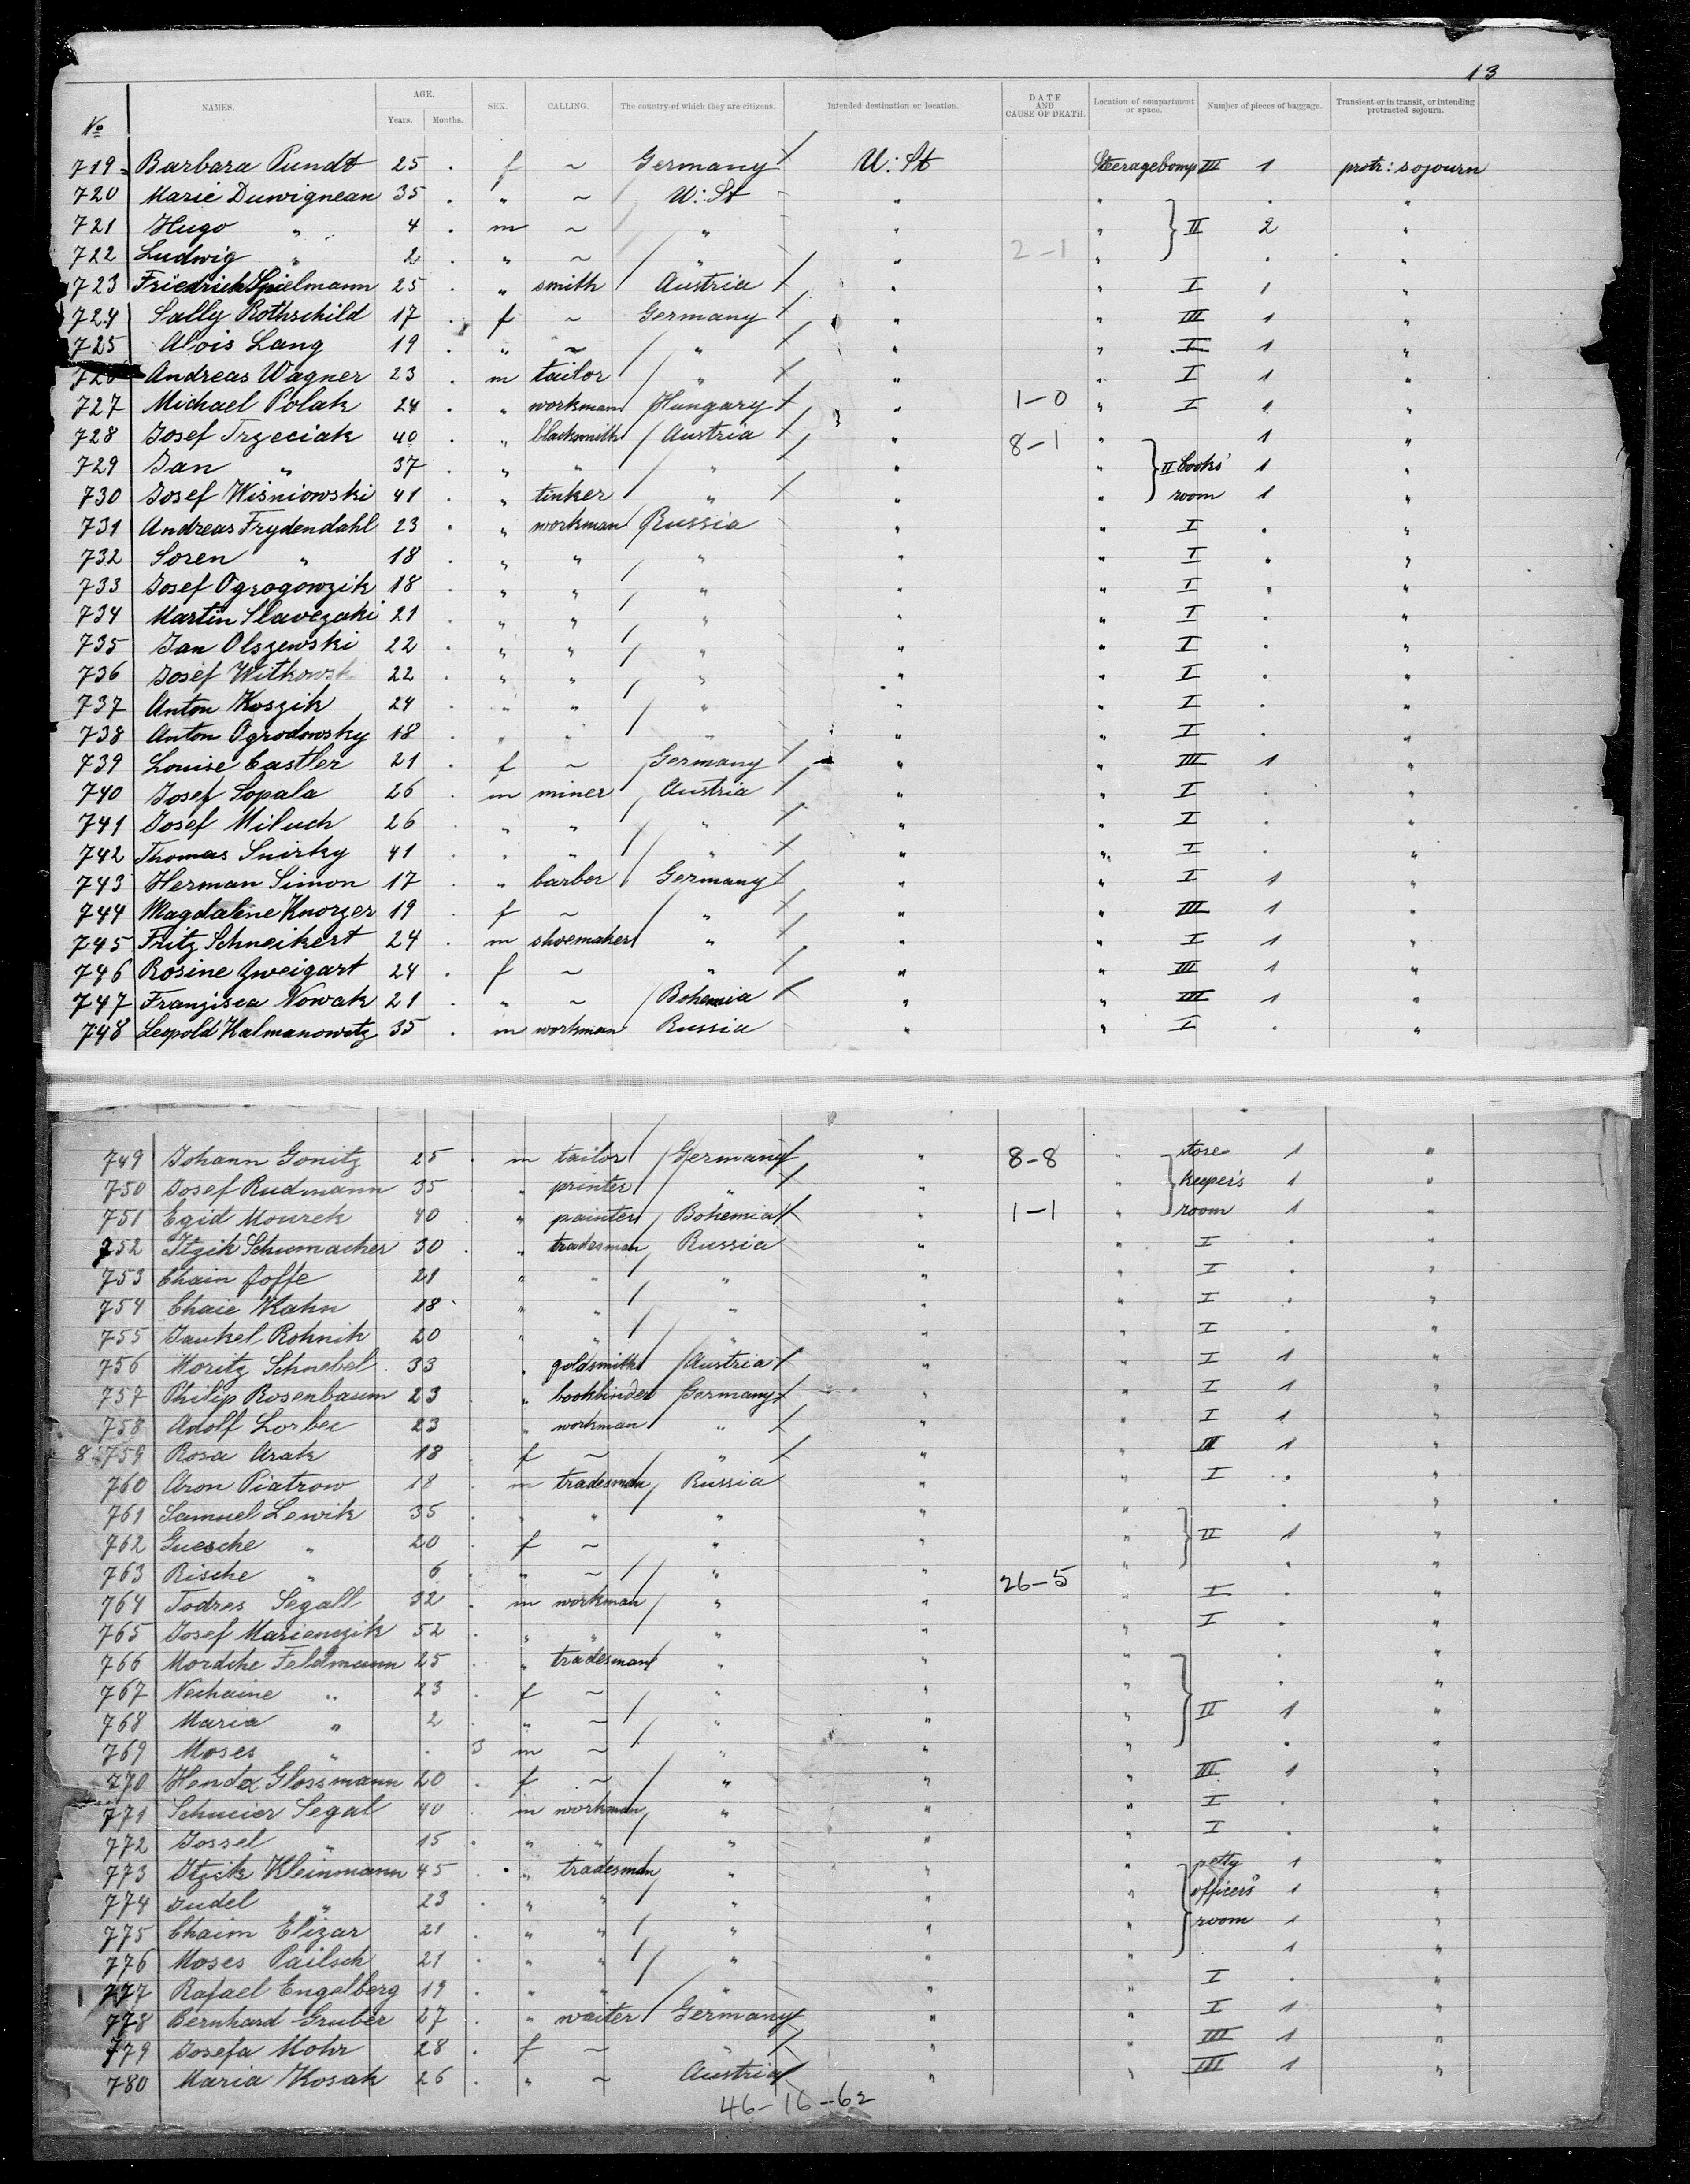 13
No NAMES. AGE. Years. Months. SEX. CALLING. The country of which they are citizens. Intended destination or location. DATE AND CAUSE OF DEATH. Location of compartment or space. Number of pieces of baggage. Transient or in transit, or intending protracted sojourn.
719 Barbara Pundt 25 . f ~ Germany U: St Steragebomp III 1 protr: sojourn
720 Marie Duwignean 35 . " ~ U: St " " . "
721 Hugo " 4 . m ~ " " " II 2 "
722 Ludwig " 2 . " ~ " " 2-1 " . "
723 Friedrich Spielmann 25 . " smith Austria " " I 1 "
724 Sally Rothschild 17 . f ~ Germany " " III 1 "
725 Alois Lang 19 . " ~ " " " I 1 "
726 Andreas Wagner 23 . m tailor " " " I 1 "
727 Michael Polak 24 . " workman Hungary " 1-0 " I 1 "
728 Josef Trzeciak 40 . " blacksmith Austria " 8-1 " 1 "
729 Jan " 37 . " " " " " II Cooks' 1 "
730 Josef Wiśniowski 41 . " tinker " " " room 1 "
731 Andreas Frydendahl 23 . " workman Russia " " I . "
732 Soren " 18 . " " " " " I . "
733 Josef Ogrogowzik 18 . " " " " " I . "
734 Martin Slavezaki 21 . " " " " " I . "
735 Jan Olszewski 22 . " " " " " I . "
736 Josef Witkowsk 22 . " " " " " I . "
737 Anton Koszik 24 . " " " " " I . "
738 Anton Ogrodowsky 18 . " " " " " I . "
739 Louise Castler 21 . f ~ Germany " " III 1 "
740 Josef Sopala 26 . m miner Austria " " I . "
741 Josef Miluch 26 . " " " " " I . "
742 Thomas Snirky 41 . " " " " " I . "
743 Herman Simon 17 . " barber Germany " " I 1 "
744 Magdalene Knorzer 19 . f ~ " " " III 1 "
745 Fritz Schneikert 24 . m shoemaker " " " I 1 "
746 Rosine Zweigart 24 . f ~ " " " III 1 "
747 Franzisca Nowak 21 . " ~ Bohemia " " III 1 "
748 Leopold Kalmanowitz 35 . m workman Russia " " I . "
749 Johann Gonitz 25 . m tailor Germany " 8-8 " store 1 "
750 Josef Rudmann 35 . " printer " " " keeper's 1 "
751 Egid Mourek 40 . " painter Bohemia " 1-1 " room 1 "
752 Itzik Schumacher 30 . " tradesman Russia " " I . "
753 Chain Joffe 21 " " " " " I . "
754 Chaie Kahn 18 . " " " " " I . "
755 Jankel Rohnik 20 " " " " " I . "
756 Moritz Schnebel 33 " goldsmith Austria " " I 1 "
757 Philip Rosenbaum 23 . " bookbinder Germany " " I 1 "
758 Adolf Lorbee 23 " workman " " " I 1 "
8 759 Rosa Arak 18 . f ~ " " " III 1 "
760 Aron Piatrow 18 . m tradesman Russia " " I . "
761 Samuel Lewik 35 . " " " " " . "
762 Guesche " 20 . f ~ " " " II 1 "
763 Rische " 6 . " ~ " " " . "
764 Todres Segall 32 . m workman " " 26-5 " I . "
765 Josef Marienczik 52 . " " " " " I . "
766 Mordche Feldmann 25 . " tradesman " " " . "
767 Nechaine " 23 . f ~ " " " . "
768 Maria " 2 . " ~ " " " II 1 "
769 Moses " . 3 m ~ " " " . "
770 Hendex Glossmann 20 . f ~ " " " III 1 "
771 Schneier Segal 40 m workman " " " I . "
772 Jossel " 15 . " " " " " I . "
773 Itzik Kleinmann 45 . " tradesman " " " petty 1 "
774 Judel " 23 . " " " " " officers' 1 "
775 Chaim Elizar 21 . " " " " " room 1 "
776 Moses Pailsch 21 . " " " " " 1 "
777 Rafael Engelberg 19 . " " " " " I . "
778 Bernhard Gruber 27 . " waiter Germany " " I 1 "
779 Josefa Mohr 28 . f ~ " " " III 1 "
780 Maria Kosak 26 . " ~ Austria " " III 1 "
46-16-62